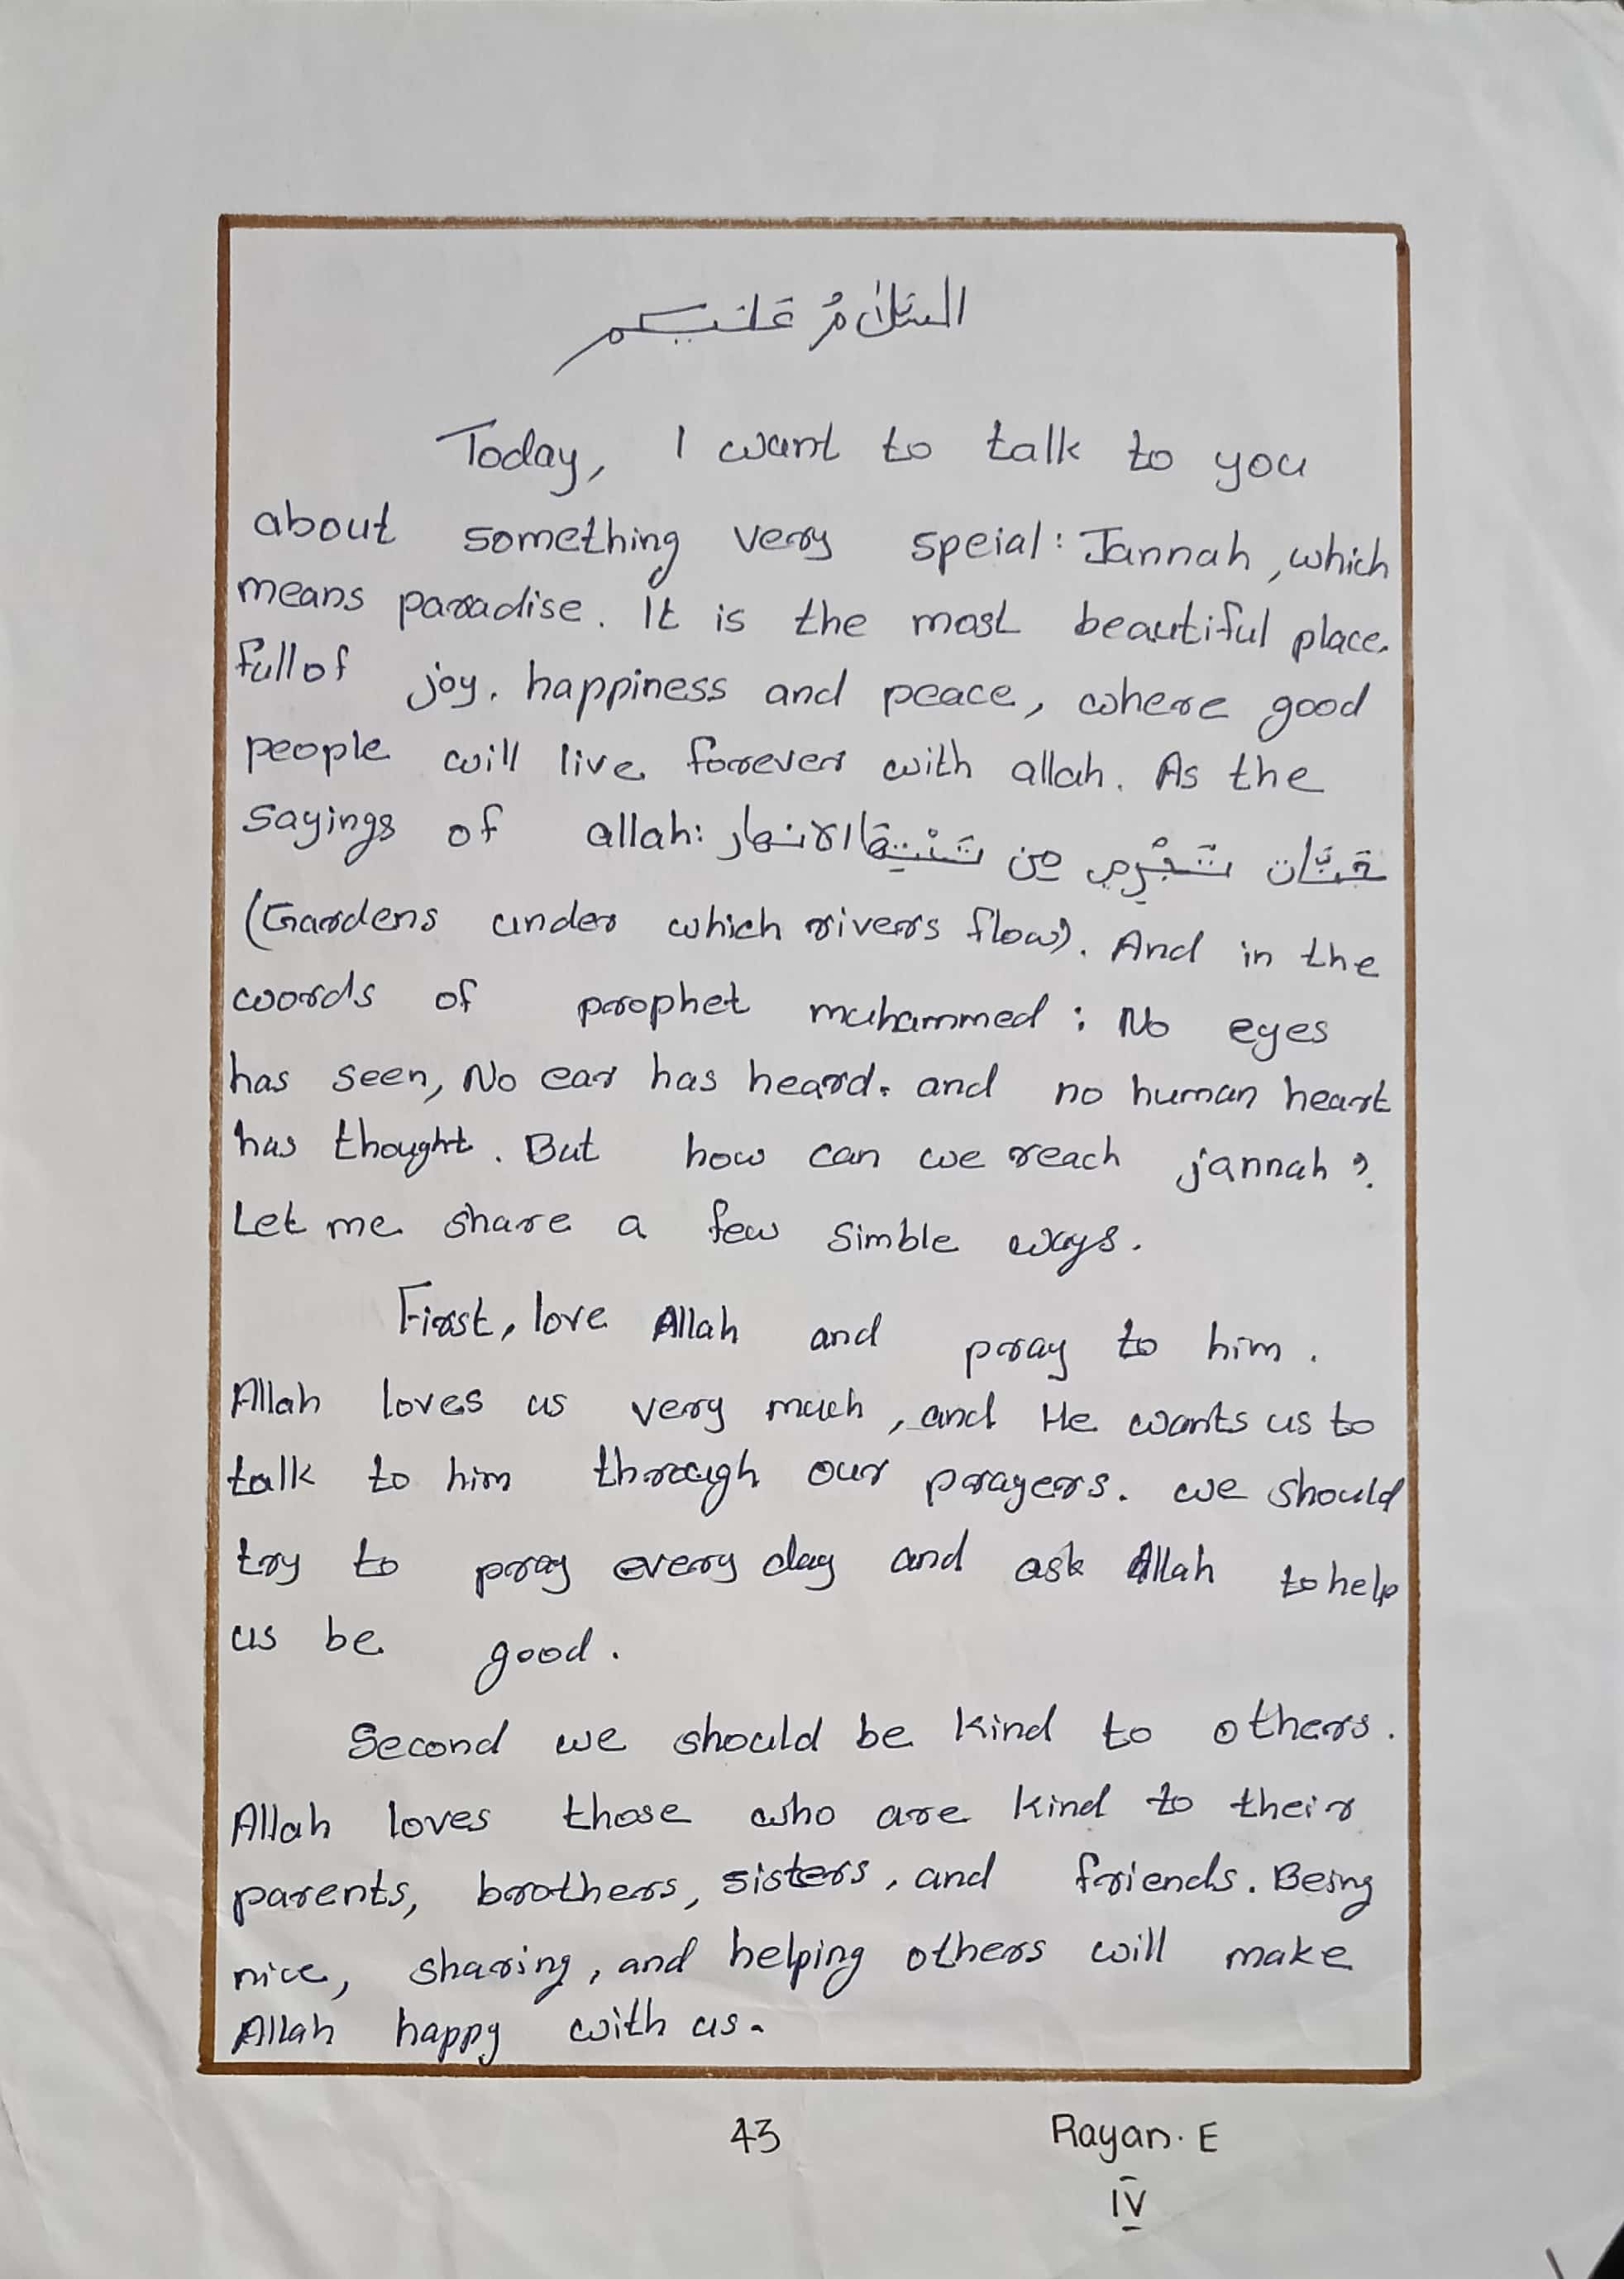 السَّلَامُ عَلَيكم
Today, I want to talk to you
about something very speial: Jannah, which
means paradise. It is the most beautiful place.
full of joy. happiness and peace, where good
people will live forever with allah. As the
sayings of allah: جَنَّات تَجْرِي مِن تَحْتِهَا الانهار
(Gardens under which rivers flow). And in the
words of prophet muhammed: No eyes
has seen, No ear has heard. and no human heart
has thought. But how can we reach jannah?
Let me share a few simble ways.
First, love Allah and pray to him.
Allah loves us very much, and He wants us to
talk to him through our prayers. we should
try to pray every day and ask Allah to help
us be good.
Second we should be kind to others.
Allah loves those who are kind to their
parents, brothers, sisters, and friends. Being
nice, sharing, and helping others will make
Allah happy with us.
43 Rayan. E
IV